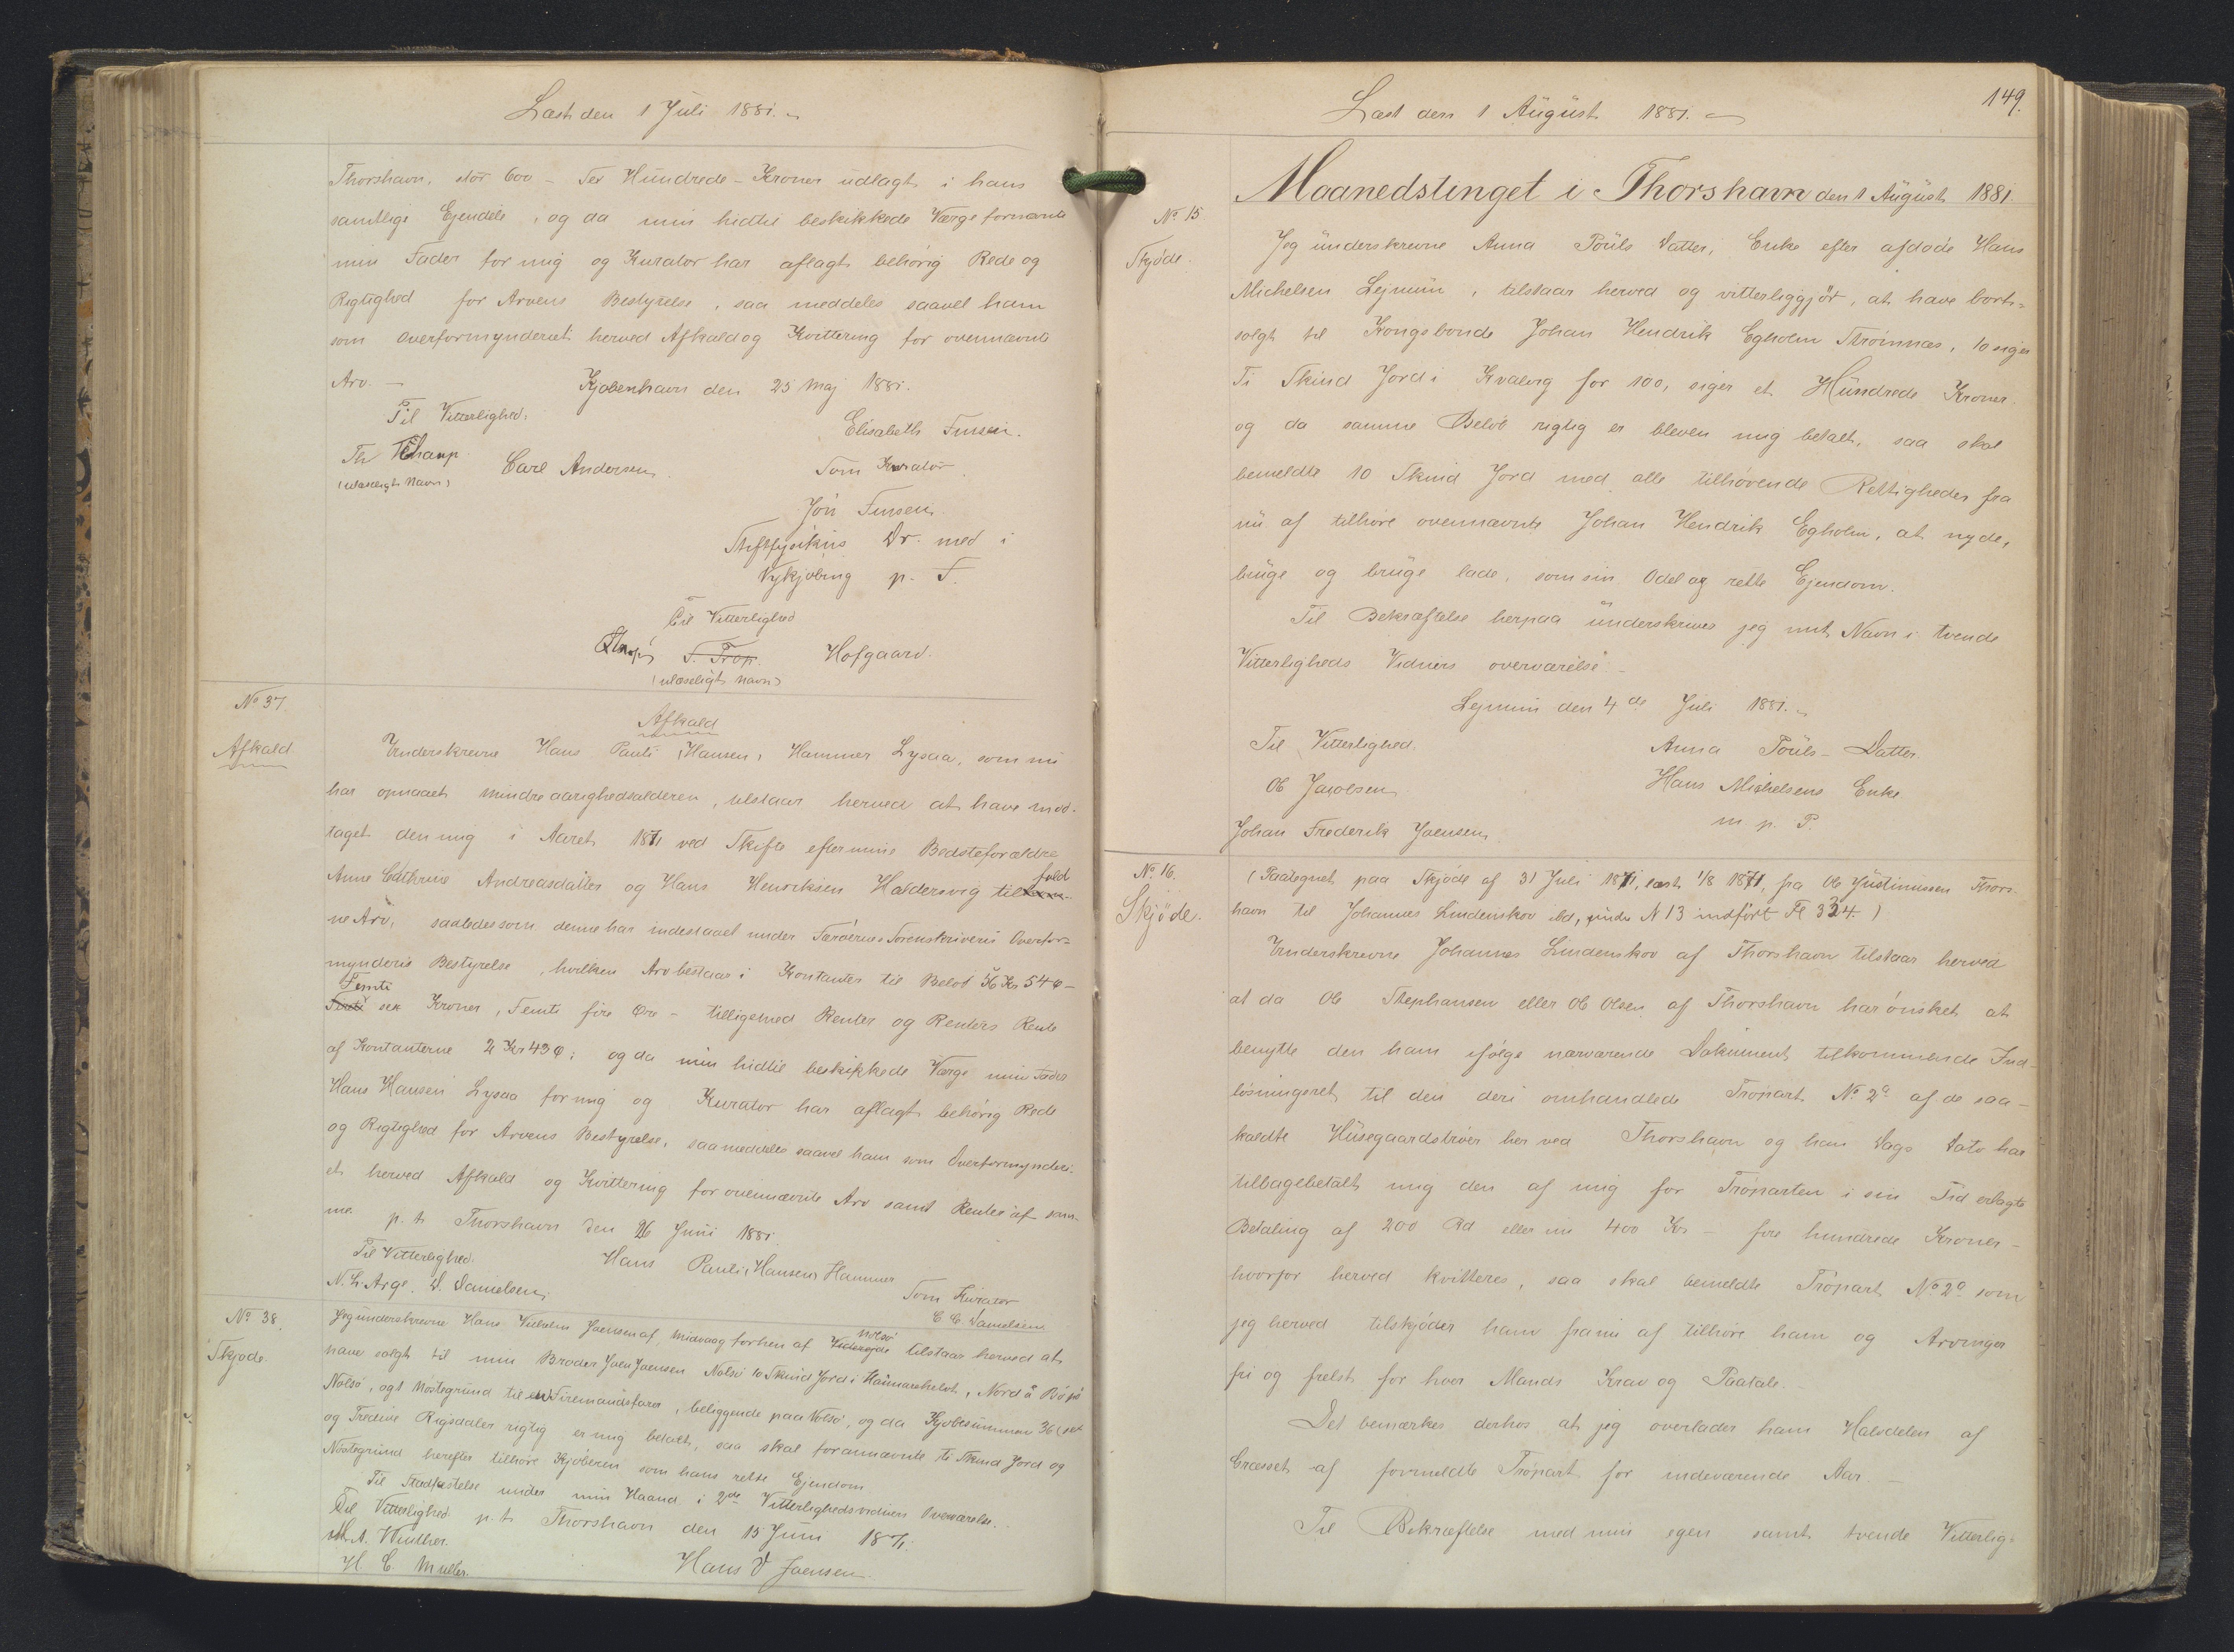 Læst den 1 Juli 1881.
Thorshavn, stor 600 - Sex Hundrede - Kroner udlagt i hans
samtlige Ejendele, og da min hidtil beskikkede Værge fornævnte
min Fader for mig og Kurator har aflagt behörig Rede og
Rigtighed for Arvens Bestyrelse, saa meddeles saavel ham
som Overformynderiet herved Afkald og Kvittering for ovennævnte
Arv. — Kjøbenhavn den 25 Maj 1881.
Til Vitterlighed:
Elisabeth Finsen.
Th Carl Andersen Som Kurator
(ulæseligt Navn)
Jón Finsen.
Stiftfysikus Dr. med i
Nykjøbing p. F.
Til Vitterlighed
F. Trop. Hofgaard.
(ulæseligt Navn)
No 37.
Afkald
Afkald
Underskrevne Hans Pauli (Hansen) Hammer Lysaa, som nu
har opnaaet Mindreaarighedsalderen, tilstaar herved at have mod-
taget den mig i Aaret 1871 ved Skifte efter mine Bedsteforældre
Anne Cathrine Andreasdatter og Hans Henriksen Haldersvig tilfald-
ne Arv, saaledes som denne har indestaaet under Færøernes Sorenskriveris Overfor-
mynderis Bestyrelse, hvilken Arv bestaar i Kontanter til Belöb 56 Kr 54 Ø -
Femti sex Kroner, Femti fire Øre - tilligemed Renter og Renters Rente
af Kontanterne 2 Kr 43 Ø; og da min hidtil beskikkede Værge min Fader
Hans Hansen Lysaa for mig og Kurator har aflagt behörig Rede
og Rigtighed for Arvens Bestyrelse, saa meddeles saavel ham som Overformynderi-
et herved Afkald og Kvittering for ovennævnte Arv samt Renter af sam-
me. p. t. Thorshavn den 26 Juni 1881.
Til Vitterlighed. Hans Pauli (Hansen) Hammer
N. L. Arge. D. Danielsen. Som Kurator
C C Danielsen
No 38.
Skjøde.
Jeg underskrevne Hans Vilhelm Joensen af Midvaag forhen af Nolsö tilstaar herved at
have solgt til min Broder Joen Joensen Nolsö 10 Skind Jord i , Nord á Bö paa
Nolsö, ogs Nöstegrund til en Firemandsfarer, beliggende paa Nolsö, og da Kjøbesummen 36 (sex
og Tredive Rigsdaler rigtig er mig betalt, saa skal forannævnte ti Skind Jord og
Nöstegrund herefter tilhöre Kjöberen som hans rette Ejendom
Til Stadfæstelse under min Haand i 2de Vitterlighedsvidners Overværelse.
Til Vitterlighed p. t. Thorshavn den 15 Juni 1871.
M. A. Winther.
H. C. Müller. Hans V Joensen.
149.
Læst den 1 August 1881.
Maanedstinget i Thorshavn den 1 August 1881.
No 15
Skjøde.
Jeg underskrevne Anna Pouls Datter, Enke efter afdøde Hans
Michelsen Lejnum, tilstaar herved og vitterliggjör, at have bort-
solgt til Kongsbonde Johan Hendrik Egholm Strömnæs, 10 siger
Ti Skind Jord i Kvalvig for 100, siger et Hundrede Kroner.
og da samme Belöb rigtig er bleven mig betalt, saa skal
bemeldte 10 Skind Jord med alle tilhörende Rettigheder fra
nu af tilhöre ovennævnte Johan Hendrik Egholm, at nyde,
bruge og bruge lade, som sin Odel og rette Ejendom.
Til Bekræftelse herpaa underskriver jeg mit Navn i tvende
Vitterligheds Vidners overværelse. -
Lejnum den 4de Juli 1881.
Til Vitterlighed. Anna Pouls-Datter.
Ole Jacobsen Hans Michelsens Enke
m. p. P.
Johan Frederik Joensen
No 16.
Skjöde.
(Paategnet paa Skjøde af 31 Juli 1871, læst 1/8 1871, fra Ole Justinussen Thors-
havn til Johannes Lindenskov ibd, under N 13 indfört Fl 334.)
Underskrevne Johannes Lindenskov af Thorshavn tilstaar herved
at da Ole Stephansen eller Ole Olsen af Thorshavn har önsket at
benytte den ham ifölge nærværende Dokument tilkommende Ind-
lösningsret til den deri omhandlede Tröpart No 2a af de saa-
kaldte Husegaardströer her ved Thorshavn og han Dags Dato har
tilbagebetalt mig den af mig for Tröparten i sin Tid erlagte
Betaling af 200 Rd eller nu 400 Kr - fire hundrede Kroner -
hvorfor herved kvitteres, saa skal bemeldte Tröpart No 2a som
jeg herved tilskjöder ham fra nu af tilhöre ham og Arvinger
fri og frelst for hver Mands Krav og Paatale. -
Det bemærkes derhos at jeg overlader ham Halvdelen af
Græsset af formeldte Tröpart for indeværende Aar. —
Til Bekræftelse med min egen samt tvende Vitterlig-